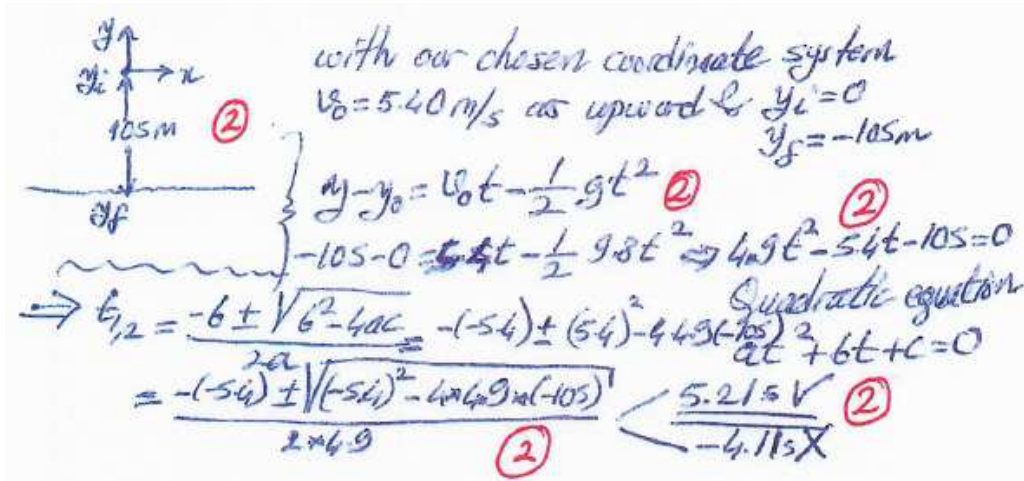 y
yi → x
105m ②
yf
with our chosen coordinate system
v₀ = 5.40 m/s as upward & yi = 0
yf = -105m
y - y₀ = v₀t - 1/2 gt² ②
②
-105 - 0 = 5.4t - 1/2 9.8t² ⇒ 4.9t² - 5.4t - 105 = 0
Quadratic equation
⇒ t₁,₂ = (-b ± √(b² - 4ac)) / 2a = -(-5.4) ± (5.4)² - 4 4.9(-105)
at² + bt + c = 0
= (-(-5.4) ± √((-5.4)² - 4*4.9*(-105))) / 2*4.9 ②
5.21s √ ②
-4.11s X